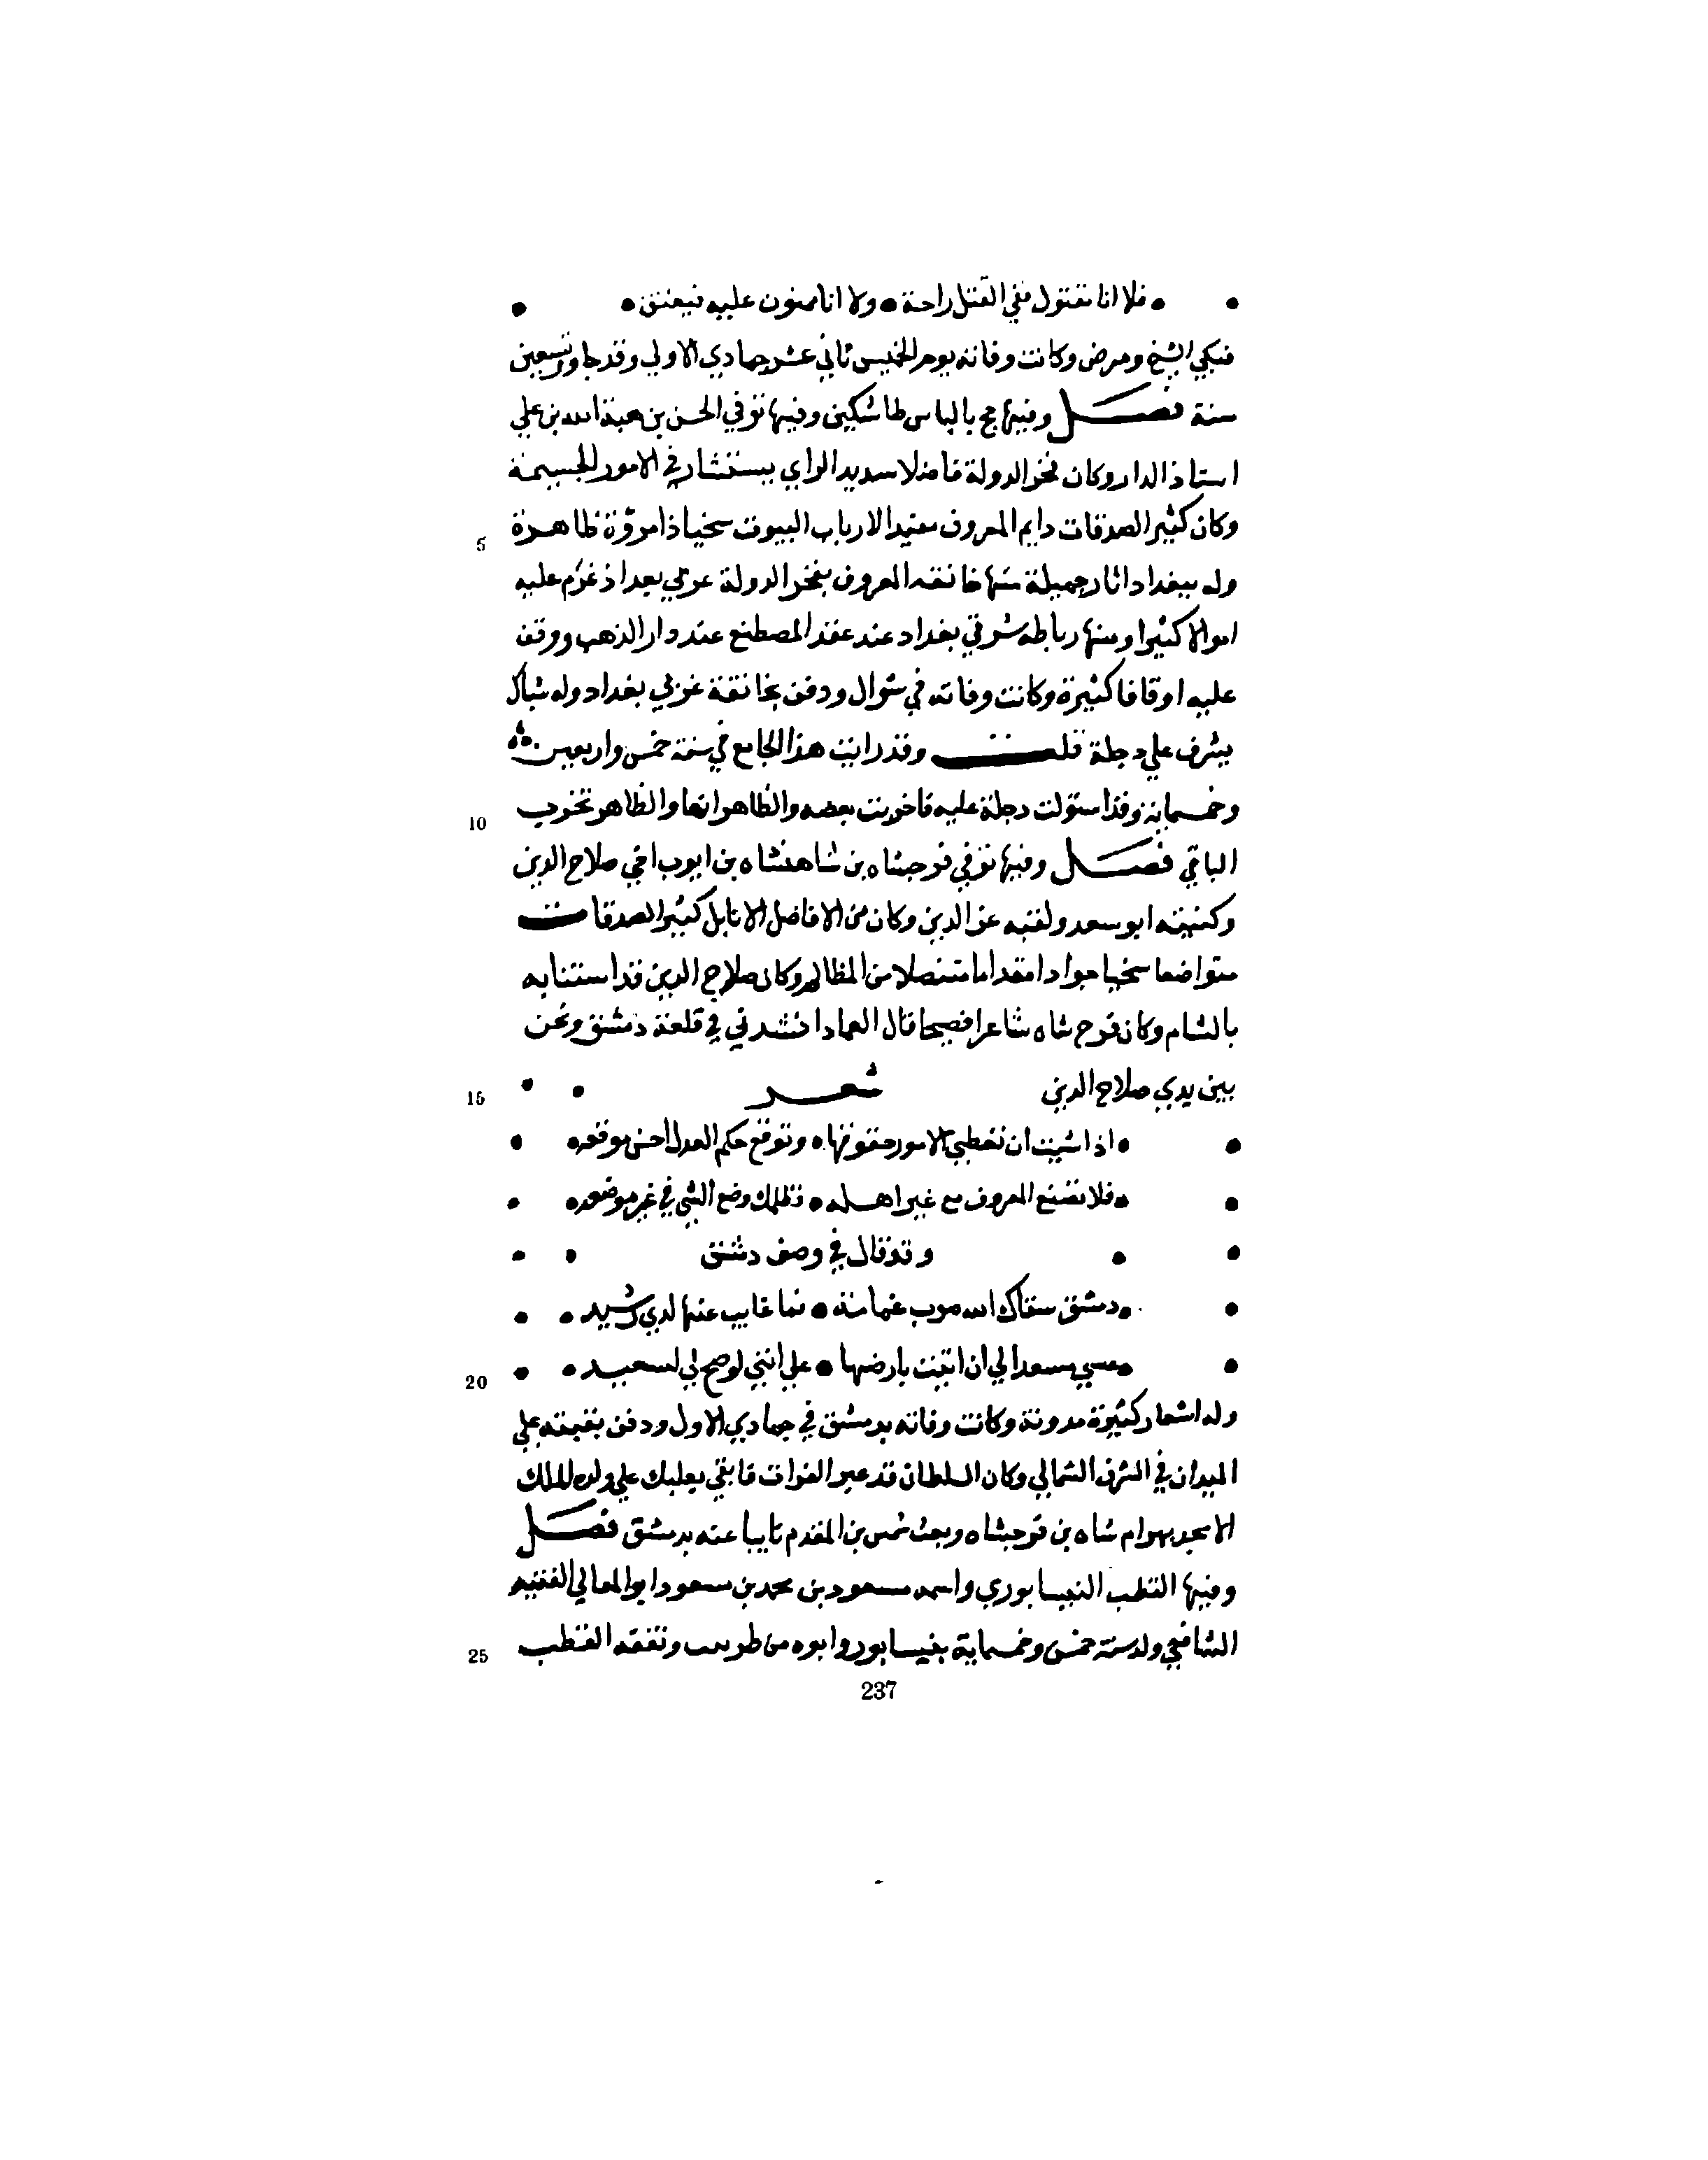 • • فلا انا مقتول ففي القتل راحة • ولا انا ممنون عليه فيعتق • •
فبكي الشيخ ومرض وكانت وفاته يوم الخميس ثاني عشر جمادي الاولي وقد جاوز تسعين
سنة فصل وفيها حج بالناس طاشتكين وفيها توفي الحسن بن هبة الله بن علي
استاذ الدار وكان فخر الدولة فاضلا سديد الراي يستشار في الامور الجسيمة
وكان كثير الصدقات دايم المعروف مفتقدا لارباب البيوت سخيا ذا مروّة ظاهرة 5
وله ببغداد اثار جميلة منها خانقه المعروف بفخر الدولة غربي بغداذ غرّم عليه
اموالا كثيرا ومنها رباطه شرقي بغداد عند عقد المصطنع عند دار الذهب ووقف
عليه اوقافا كثيرة وكانت وفاته في شوال ودفن بخانقة غربي بغداد وله شباك
يشرف علي دجلة قلت وقد رايت هذا الجامع في سنة خمس واربعين
وخمسماية وقد استولت دجلة عليه فاخربت بعضه والظاهر انها والظاهر تخرب 10
الباقي فصل وفيها توفي فرجشاه بن شاهنشاه بن ايوب اخي صلاح الدين
وكنيته ابو سعد ولقبه عز الدين وكان من الافاضل الاماثل كثير الصدقات
متواضعا سخيا جوادا مقداما متنصلا من المظالم وكان صلاح الدين قد استنابه
بالشام وكان فرح شاه شاعرا فصيحا قال العماد انشدني في قلعة دمشق ونحن
بين يدي صلاح الدين شعر • • • 15
• • اذا شيت ان تعطي الامور حقوقها • وتوقع حكم العدل احسن موقعه • •
• • فلا تصنع المعروف مع غير اهله • فظلمك وضع الشي في غير موضعه • •
• • وقد قال في وصف دمشق • •
• • دمشق سقاك الله صوب غمامة • فما غايب عنها لدي رشيد • •
• • عسي مسعد لي ان ابيت بارضها • علي انني لو صح لي لسعيد • • 20
وله اشعار كثيرة مدونة وكانت وفاته بدمشق في جمادي الاول ودفن بقبته علي
الميدان في الشرف الشمالي وكان السلطان قد عبر الفرات فابقي بعلبك علي ولده الملك
الامجد بهرام شاه بن فرجشاه وبعث شمس بن المقدم نايبا عنه بدمشق فصل
وفيها القطب النيسابوري واسمه مسعود بن محمد بن مسعود ابو المعالي الفقيه
الشافعي ولد سنة خمس وخمسماية بنيسابور وابوه من طريث وتفقه القطب 25
237